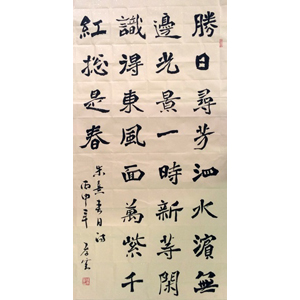 勝日尋芳泗水濱無
邊光景一時新等閑
識得東風面萬紫千
紅総是春
朱熹春日詩
丙申年